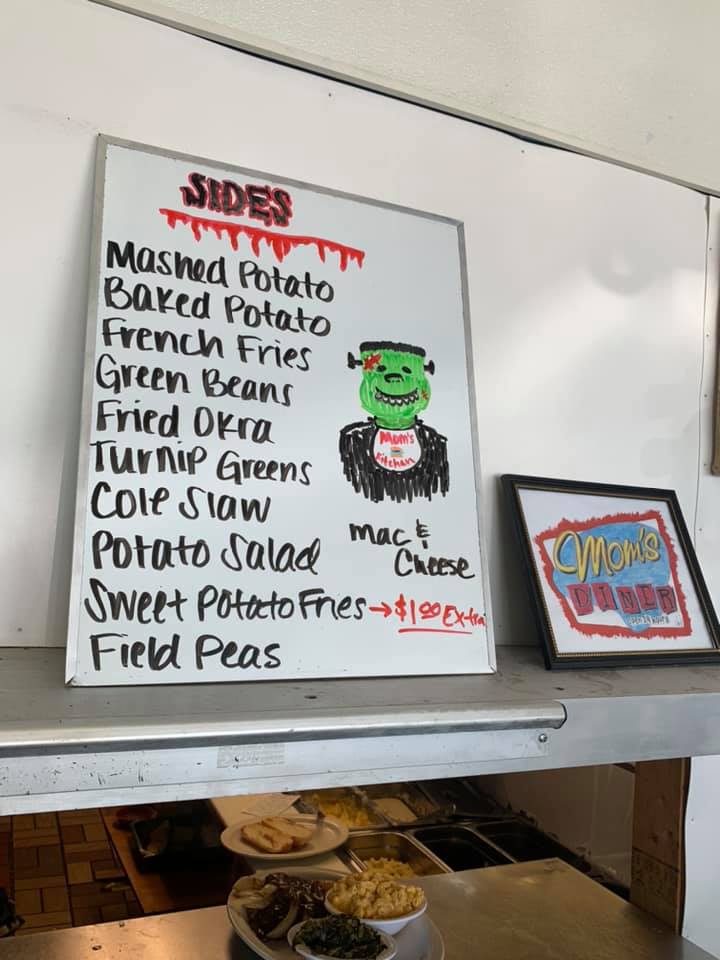 SIDES
Mashed Potato
Baked Potato
French Fries
Green Beans
Fried Okra
Turnip Greens
Cole Slaw
Potato Salad
Sweet Potato Fries → $1.00 Extra
Field Peas
Mom's
Kitchen
Mac &
Cheese
Mom's
DINER